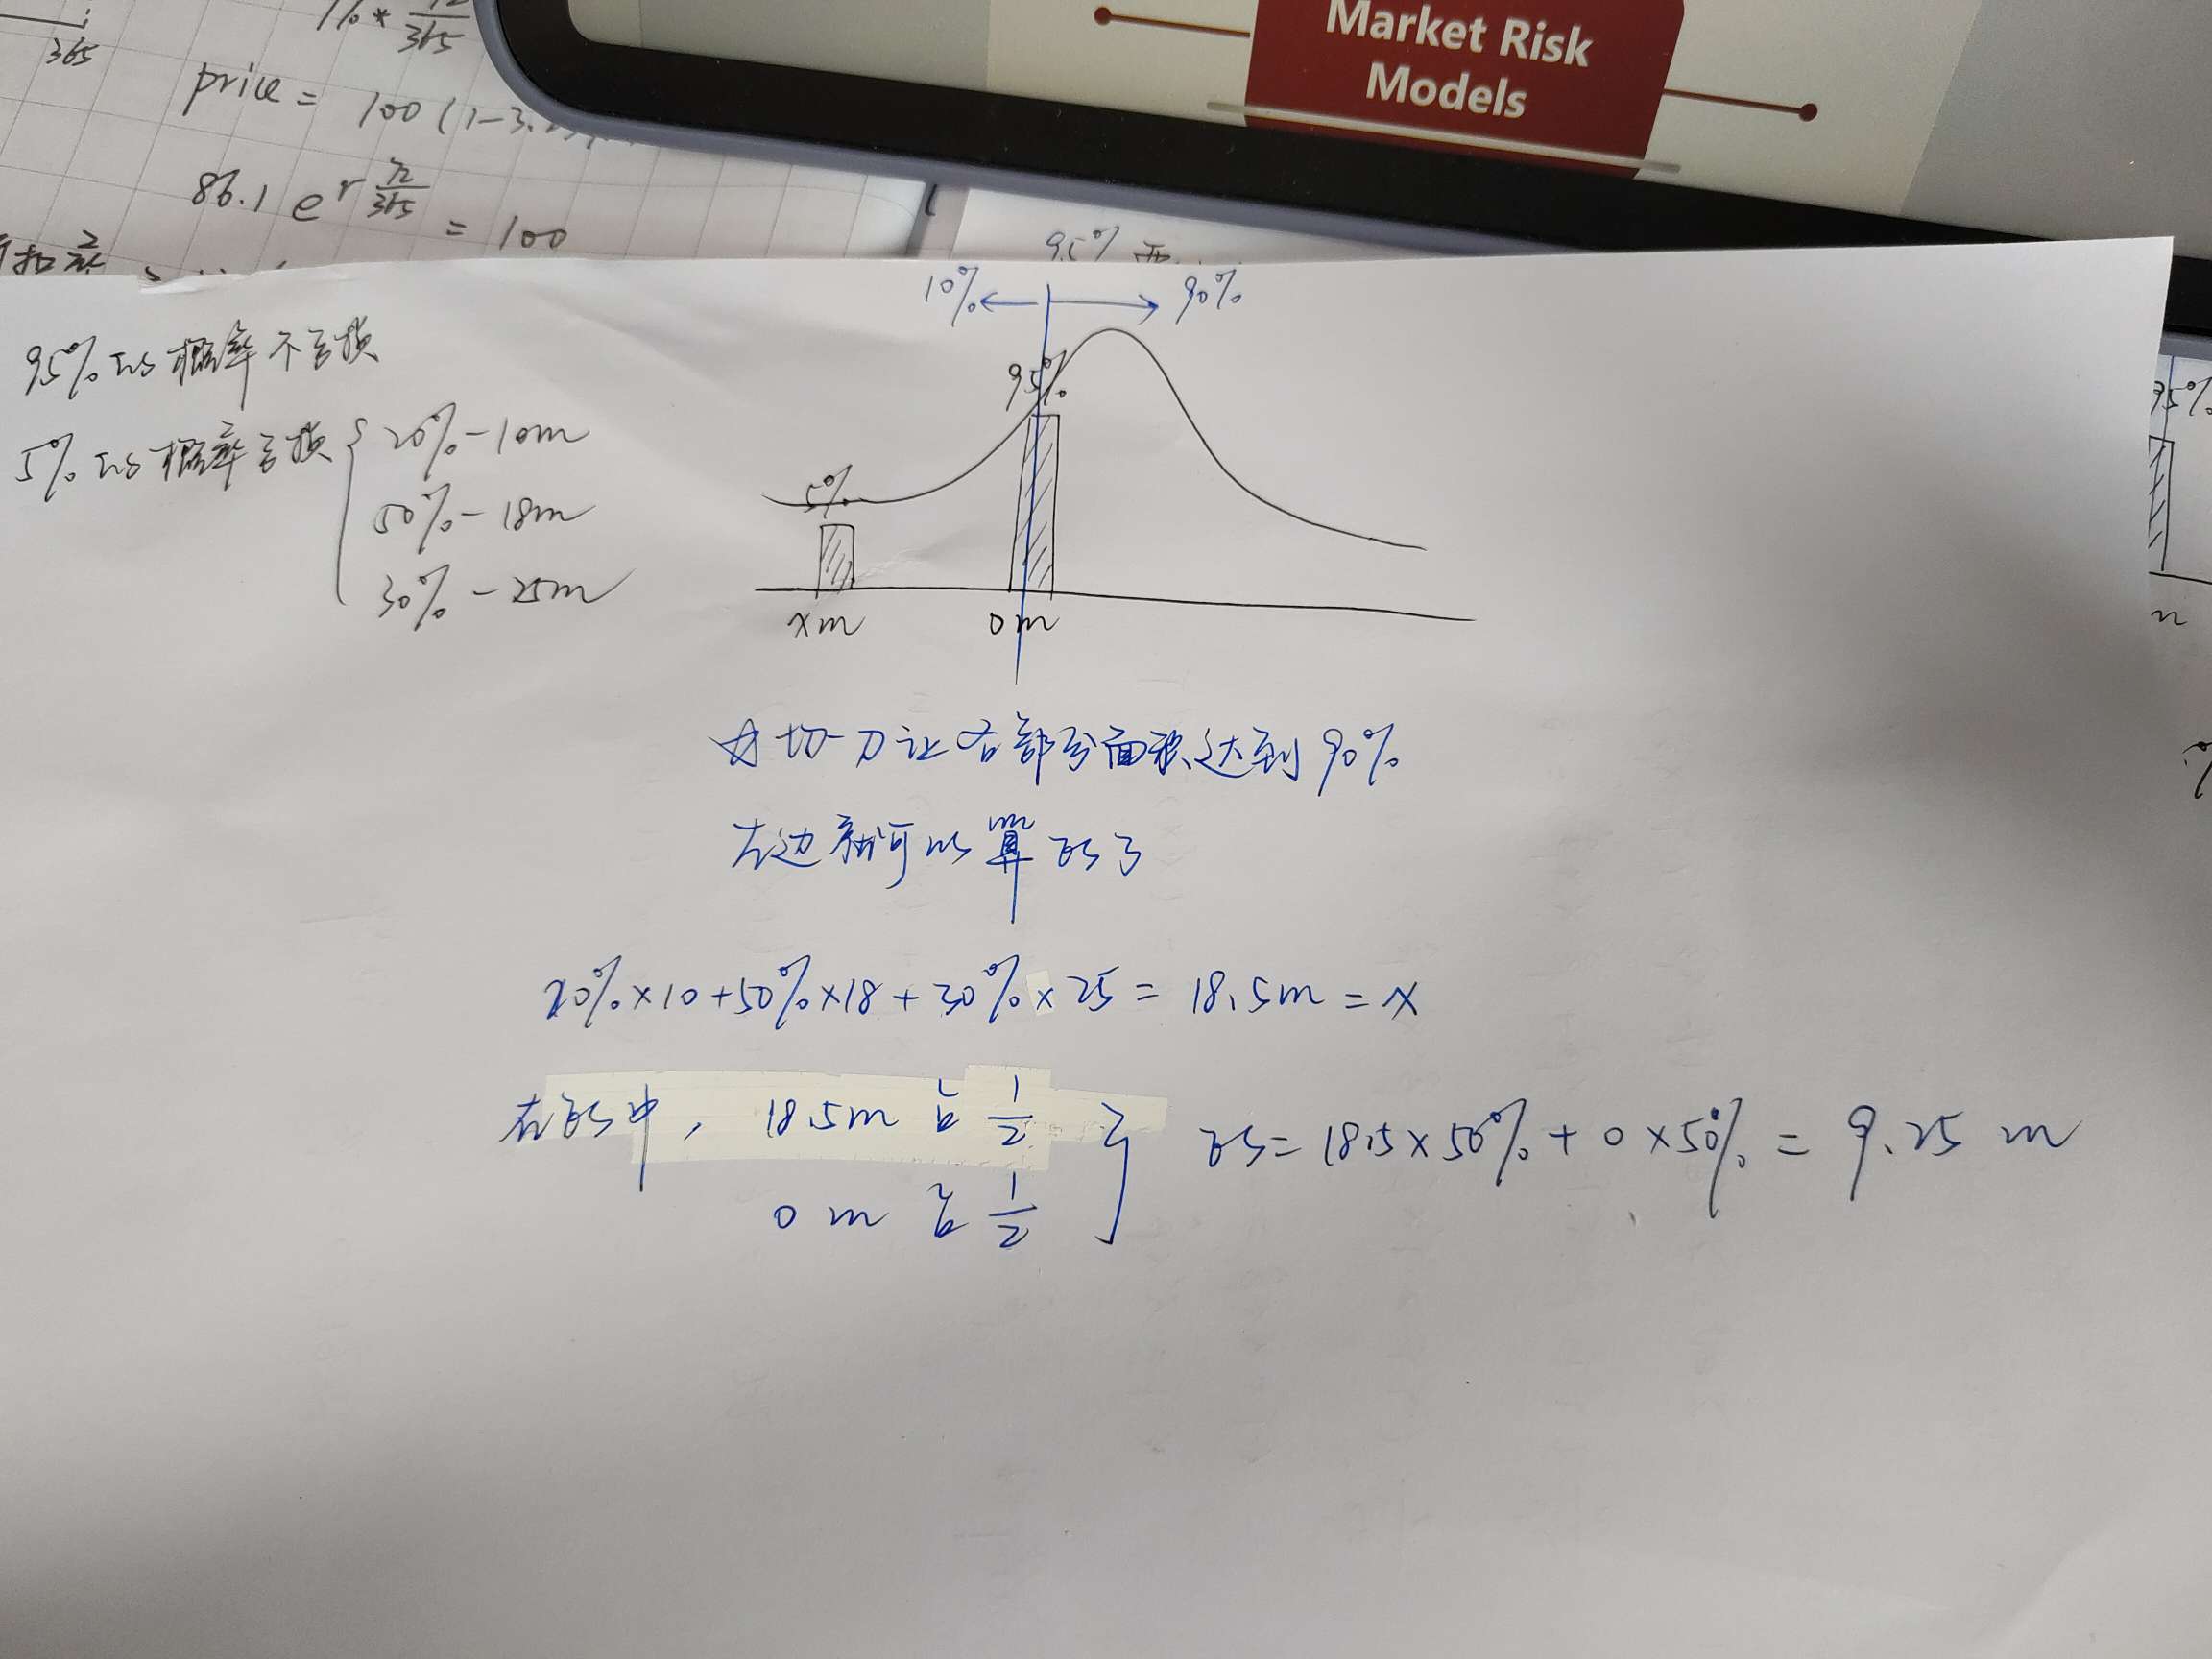 365
1% * 72/365
price = 100 (1-3.
86.1 e^r 72/365 = 100
Market Risk
Models
95%
10% ← → 90%
95%的概率不亏损
5%的概率亏损 { 20%-10m
50%-18m
30%-25m
95%
5%
xm
0m
95%
m
%
切一刀让右部分面积达到90%
左边就可以算ES了
20%×10+50%×18+30%×25=18.5m=x
在ES中, 18.5m占1/2
0m占1/2
} ES=18.5×50%+0×50%=9.25m